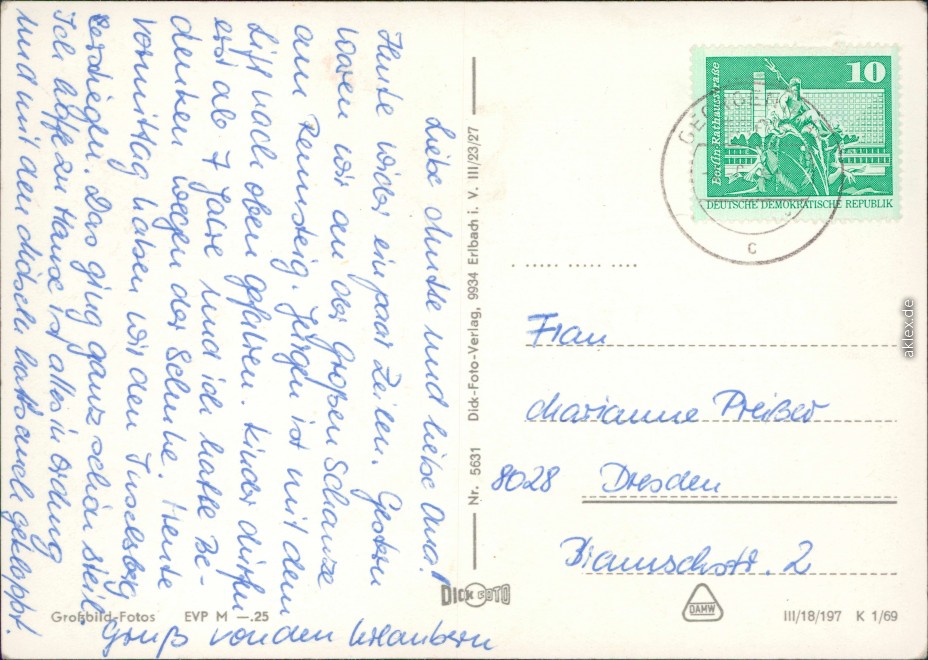 Liebe Mutti und liebe Oma!
Heute wieder ein paar Zeilen. Gestern
waren wir an der Großen Schanze
am Rennsteig. Jürgen ist mit dem
Lift nach oben gefahren. Kinder dürfen
erst ab 7 Jahre und ich hatte Be-
denken wegen der Schuhe. Heute
Vormittag haben wir den Inselsberg
bestiegen. Das ging ganz schön steil.
Ich hoffe zu Hause ist alles in Ordnung
und mit den hat's auch geklappt.
Gruß von den Urlaubern
Großbild-Fotos EVP M —.25
Nr. 5631 Dick-Foto-Verlag, 9934 Erlbach i. V. III/23/27
DICK FOTO
10
Berlin-Rathausstraße
DEUTSCHE DEMOKRATISCHE REPUBLIK
c
Frau
Marianne Preißer
8028 Dresden
2
DAMW
III/18/197 K 1/69
aklex.de